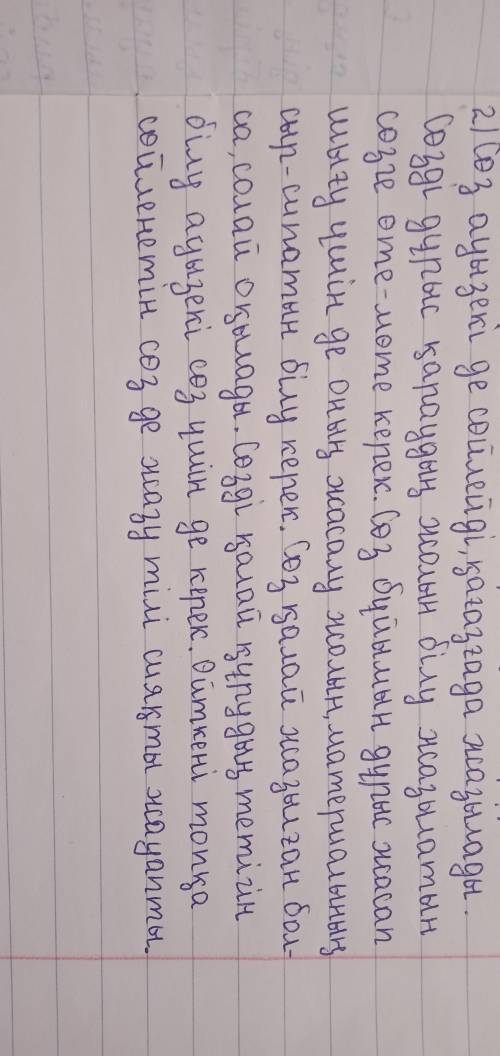 2) Сөз ауызекі де сөйлейді, қағазғада жазылады.
Сөзді дұрыс қараудың жолын білу жазылатын
сөзге өте-мөте керек. Сөз бұйымын дұрыс жасап
шығу үшін де оның жасалу жолын, материалының
сыр-сипатын білу керек. Сөз қалай жазылған бол-
са, солай оқылады. Сөзді қалай құрудың тетігін
білу ауызекі сөз үшін де керек. Өйткені топқа
сөйленетін сөз де жазу тілі сияқты жауапты.